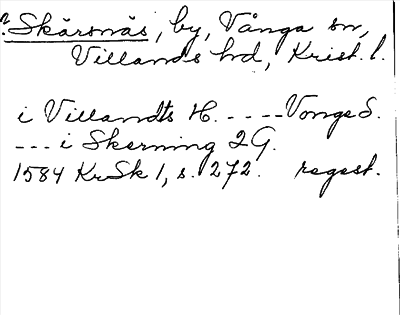 ? Skärsnäs, by, Vånga sn,
Villands hd, Krist. l.
i Villandts H. - - - - Vonge S.
- - - i Skerning 2 G.
1584 KrSk 1, s. 272. regest.